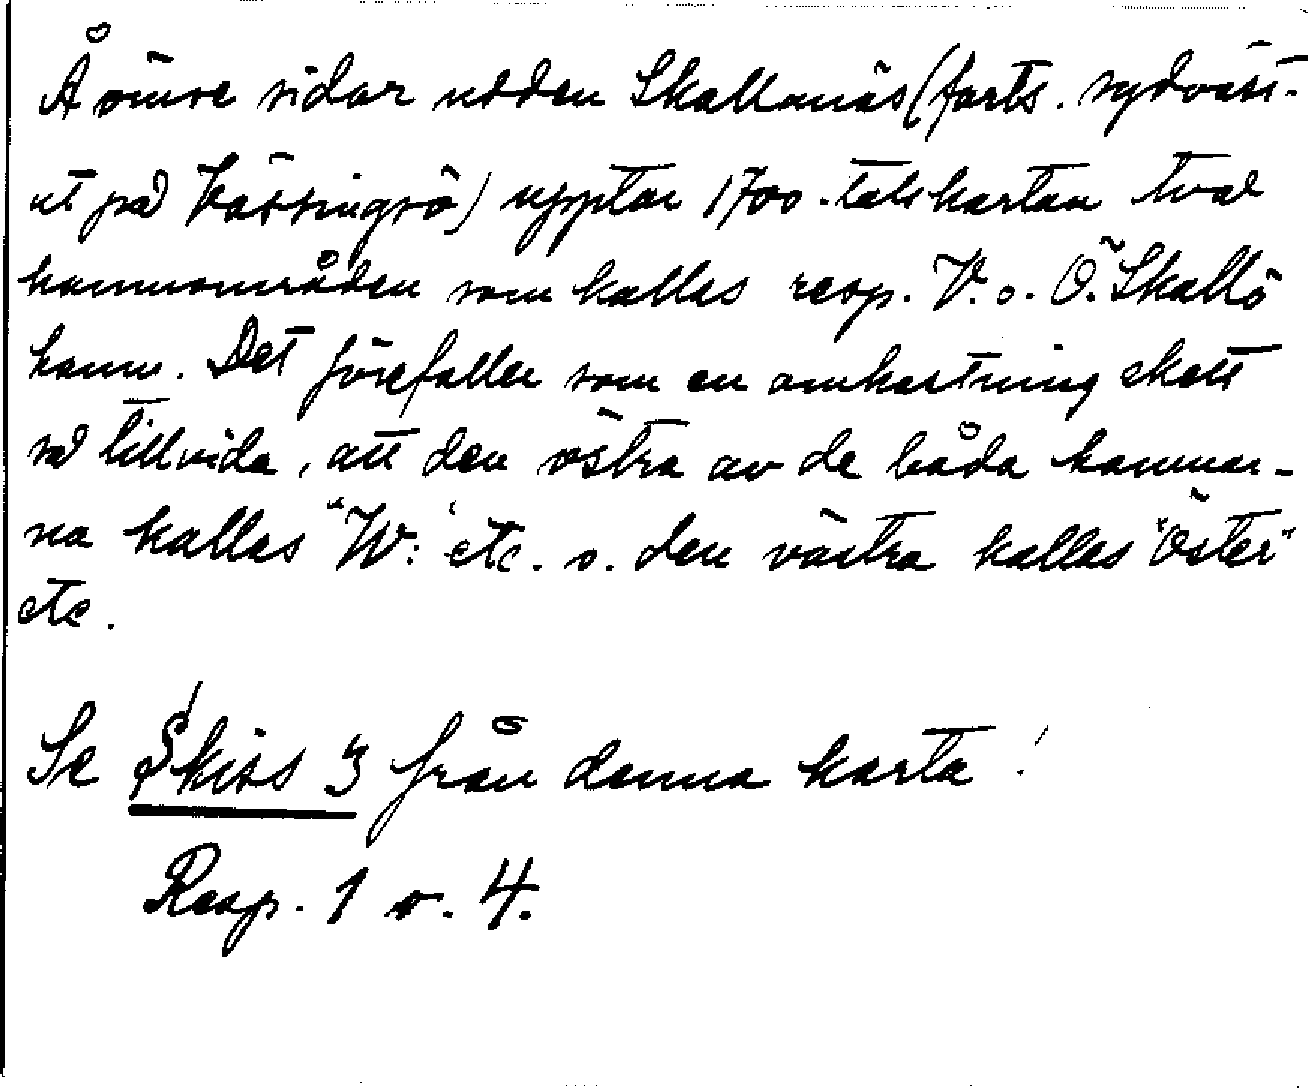 Å ömse sidor udden Skallnäs (forts. sydväst-
ut på Vässingsö) upptar 1700-talskartan två
hamnområden som kallas resp. V. o. Ö. Skallö
hamn. Det förefaller som en omkastning skett
så tillvida, att den östra av de båda hamnar-
na kallas "W: etc. o. den västra kallas "Öster"
etc.
Se Skiss 3 från denna karta!
Resp. 1 o. 4.